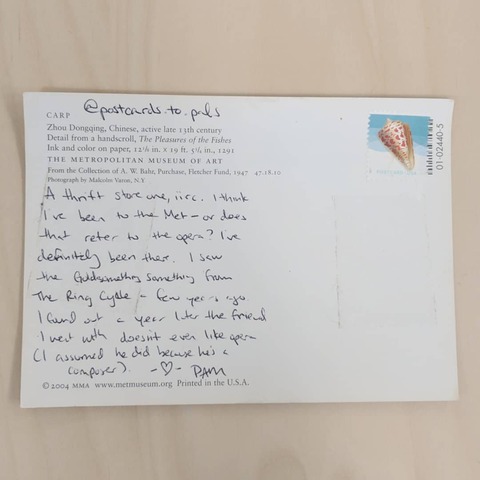 @postcards.to.pals
CARP
Zhou Dongqing, Chinese, active late 13th century
Detail from a handscroll, The Pleasures of the Fishes
Ink and color on paper, 12⅛ in. X 19 ft. 5⅞ in., 1291
THE METROPOLITAN MUSEUM OF ART
From the Collection of A. W. Bahr, Purchase, Fletcher Fund, 1947 47.18.10
Photograph by Malcolm Varon, N.Y.
A thrift store one, iirc. I think
I've been to the Met – or does
that refer to the opera? I've
definitely been there. I saw
the Goldsomething Something from
The Ring Cycle a few years ago.
I found out a year later the friend
I went with doesn't even like opera
(I assumed he did because he's a
composer). -♡- PAM
© 2004 MMA www.metmuseum.org Printed in the U.S.A.
01-02440-5